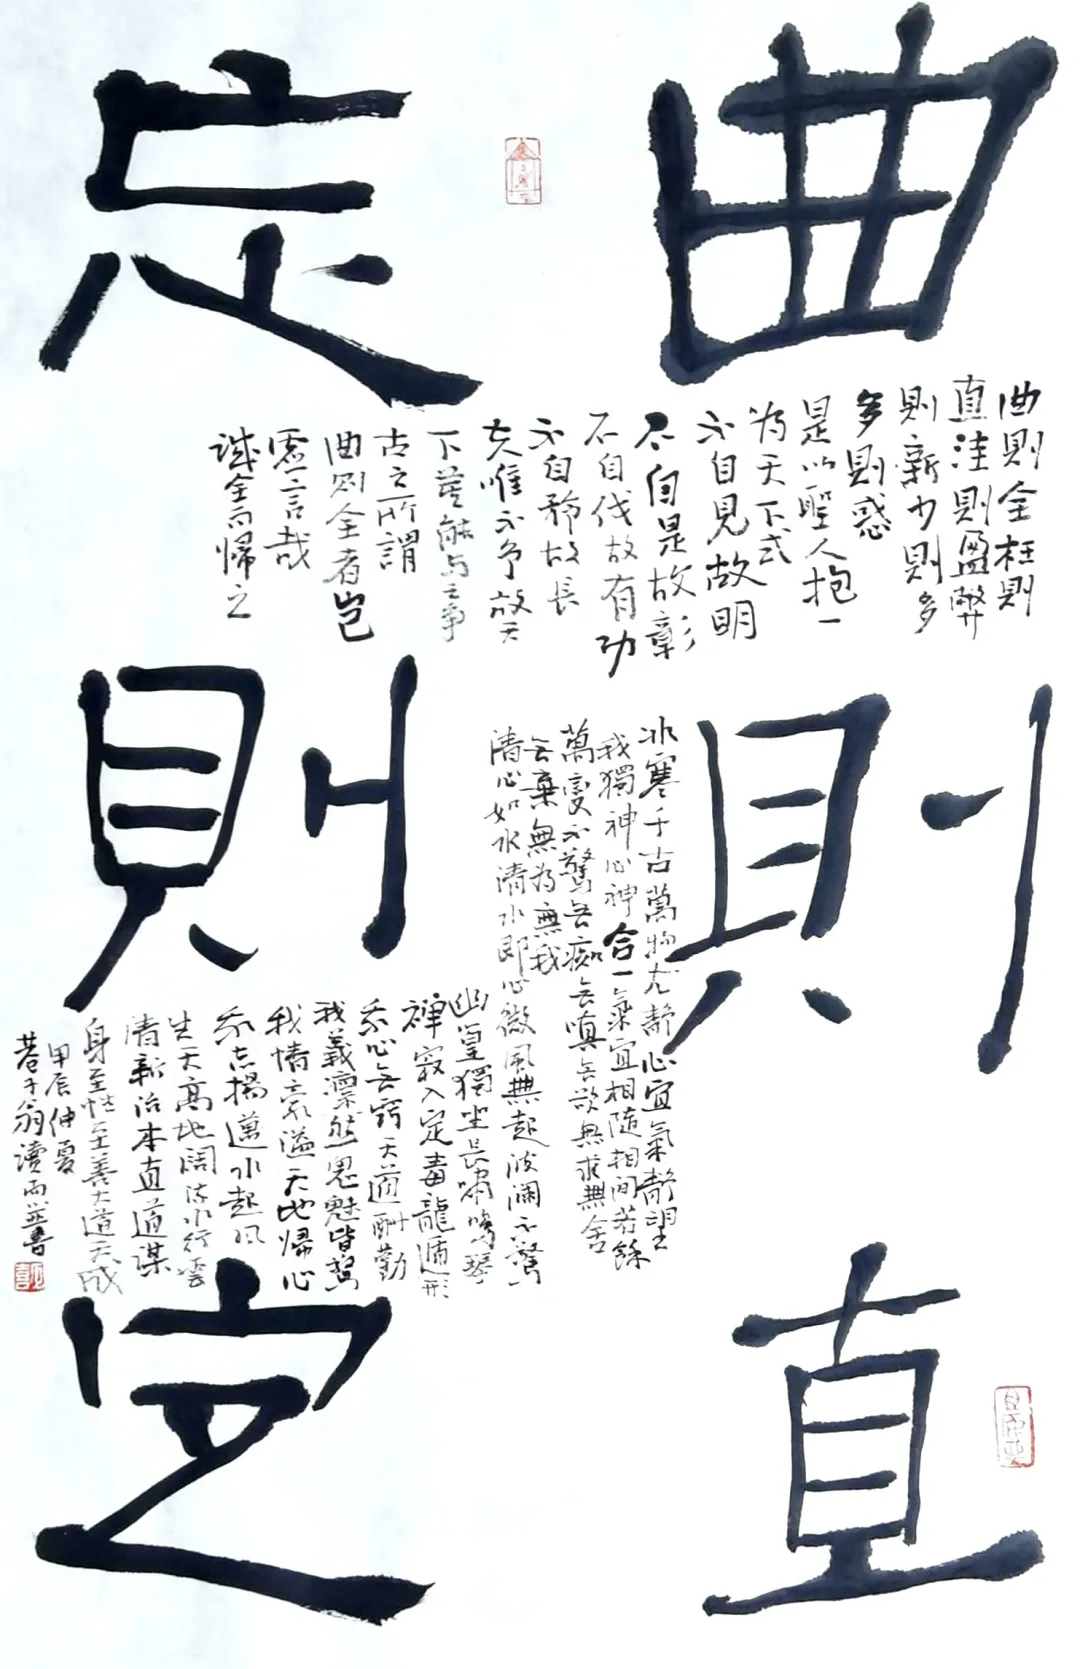 曲則直
忘則定
曲則全枉則
直洼則盈弊
則新少則多
多則惑
是以聖人抱一
為天下式
不自見故明
不自是故彰
不自伐故有功
不自矜故長
夫唯不爭故天
下莫能與之爭
古之所謂
曲則全者豈
虛言哉
誠全而歸之
冰寒千古萬物尤靜心宜氣靜望
我獨神心神合一氣宜相隨相間若餘
萬變不驚無痴無嗔無欲無求無舍
無棄無為無我
清心如水清水即心微風無起波瀾不驚
幽篁獨坐長嘯鳴琴
禪寂入定毒龍遁形
我心無竅天道酬勤
我義凛然鬼魅皆驚
我情豪溢天地歸心
我志揚邁水起風
生天高地闊流水行雲
清新治本直道謀
身至性至善大道天成
甲辰仲夏
巷子翁讀而并書